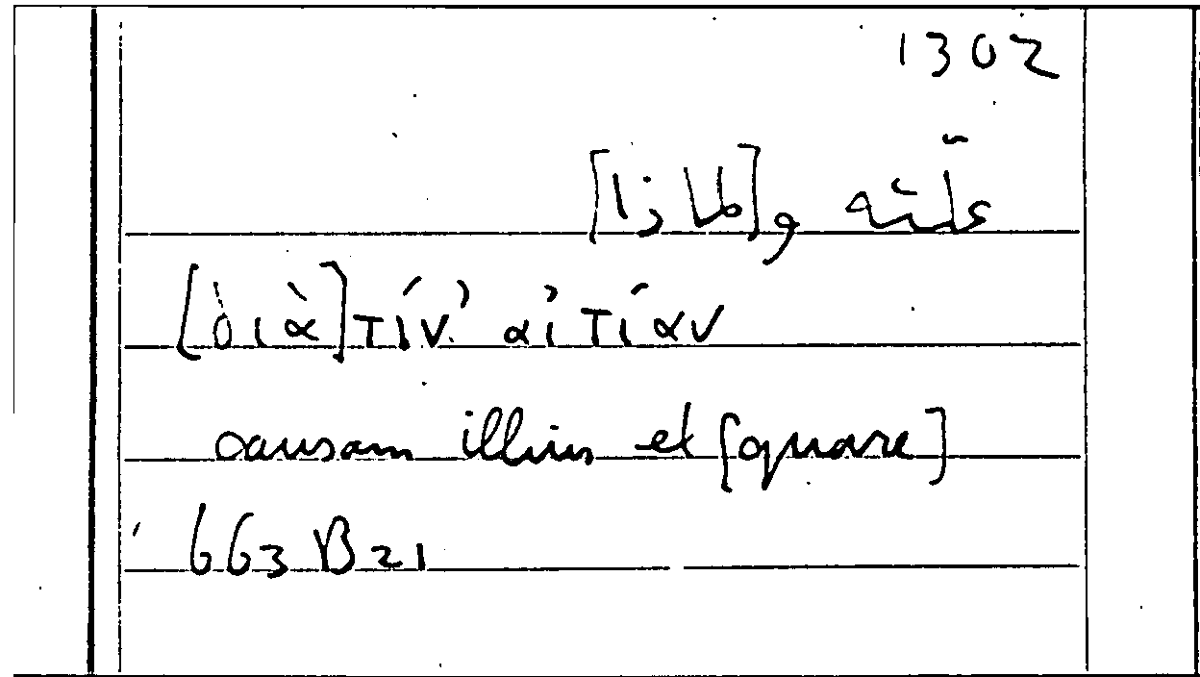 1302
علّته و[لماذا]
[διὰ] τίν' αἰτίαν
causam illius et [quare]
663 B 21